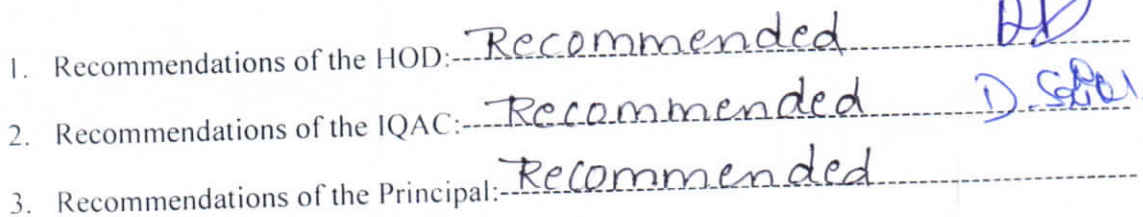 1. Recommendations of the HOD:- Recommended
2. Recommendations of the IQAC:- Recommended
3. Recommendations of the Principal:- Recommended